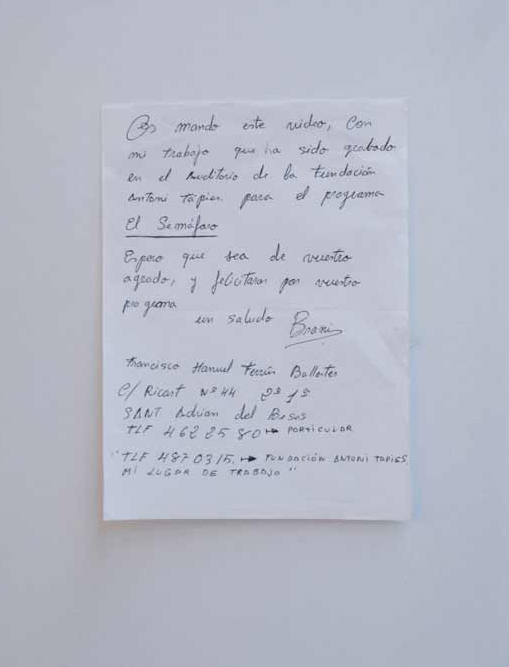 Os mando este video, con
mi trabajo que ha sido grabado
en el Auditorio de la Fundación
Antoni Tapies para el programa
El Semáforo
Espero que sea de vuestro
agrado, y felicitaros por vuestro
programa
un saludo
Francisco Manuel Ballester
C/ Ricart Nº 44 2º 1ª
SANT Adrian del Besos
TLF 462 25 80 → PARTICULAR
"TLF 487 03 15. → FUNDACIÓN ANTONI TAPIES.
MI LUGAR DE TRABAJO"